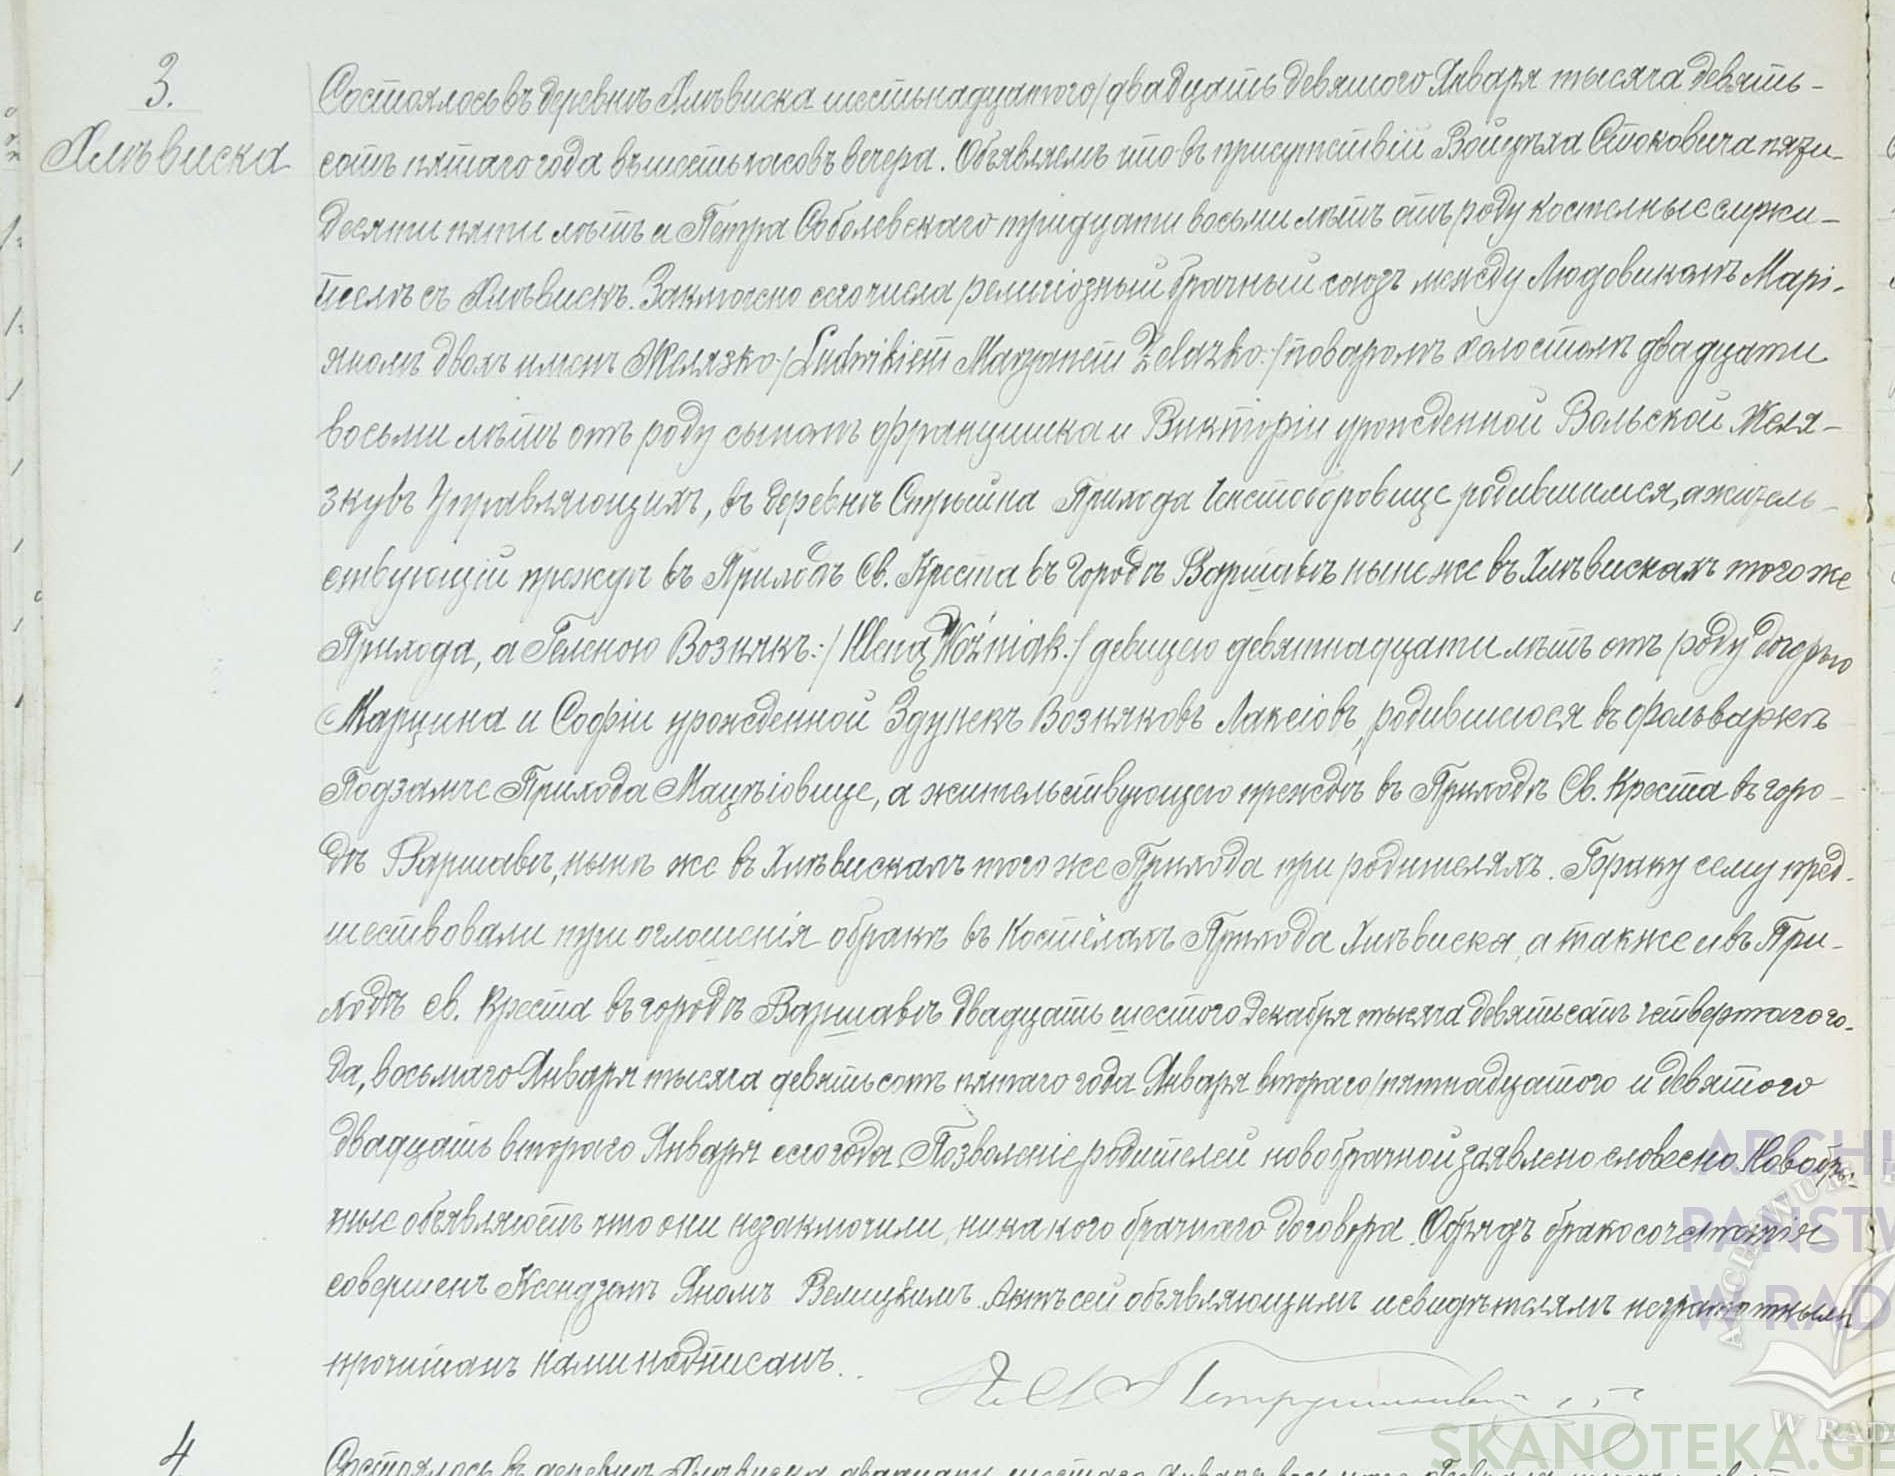 3.
Хлѣвиска
Состоялось въ деревнѣ Хлѣвиска шестьнадцатого/двадцать девятого Января тысяча девять-
сотъ пятаго года въ шесть часовъ вечера. Объявляемъ что въ присутствіи Войцѣха Стоковича пяти-
десяти пяти лѣтъ и Петра Соболевскаго тридцати восьми лѣтъ отъ роду костельные служи-
телѣ съ Хлѣвискъ. Заключено сего числа религіозный брачный союзъ между Людовикомъ Марі-
яномъ двохъ именъ Желязко:/Ludwikiem Maryanem Żelazko:/поваромъ холостомъ двадцати
восьми лѣтъ отъ роду сыномъ Францишка и Викторіи урожденной Вольской Желя-
зкувъ Управляющихъ, въ деревнѣ Стрыйна Прихода Чистоборовице родившимся, а житель-
ствующій прежде въ Приходѣ Св. Креста въ городѣ Варшавѣ ныне же въ Хлѣвискахъ того же
Прихода, а Геленою Вознякъ:/Heleną Woźniak:/ девицею девятнадцати лѣтъ отъ роду дочерью
Марцина и Софіи урожденной Здунекъ Возняковъ Лакеіовъ, родившеюся въ фольваркѣ
Подзамче Прихода Мацѣіовице, а жительствующею прежде въ Приходѣ Св. Креста въ горо-
дѣ Варшавѣ, нынѣ же въ Хлѣвискахъ того же Прихода при родителяхъ. Браку сему пред-
шествовали три оглошенія о бракѣ въ Костёлахъ Прихода Хлѣвиска, а также и въ При-
ходѣ св. Креста въ городѣ Варшавѣ двадцать шестого Декабря тысяча девятьсотъ четвертаго го-
да, восьмаго Января тысяча девятьсотъ пятаго года Января втораго/пятнадцатого и девятого
двадцать втораго Января сего года. Позволеніе родителей новобрачной заявлено словесно. Новобра-
чные объявляютъ что они незаключили никакого брачнаго договора. Обрядъ бракосочетанія
совершенъ Ксендзомъ Яномъ Велицкимъ. Актъ сей объявляющимъ и свидѣтелямъ неграмотнымъ
прочитанъ нами подписанъ.
4
Состоялось въ деревнѣ Хлѣвиска двадцать шестаго Января
ARCHI
PAŃSTW
W RAD
ARCHIWUM
W RAD
SKANOTEKA.GE